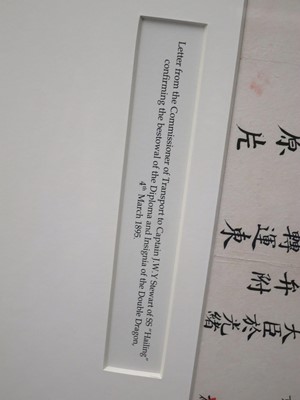 Letter from the Commissioner of Transport to Captain J.W.Y Stewart of SS "Hailing"
confirming the bestowal of the Diploma and Insignia of the Double Dragon,
4th March 1895.
原片
轉運東
弁附
大臣於光緒